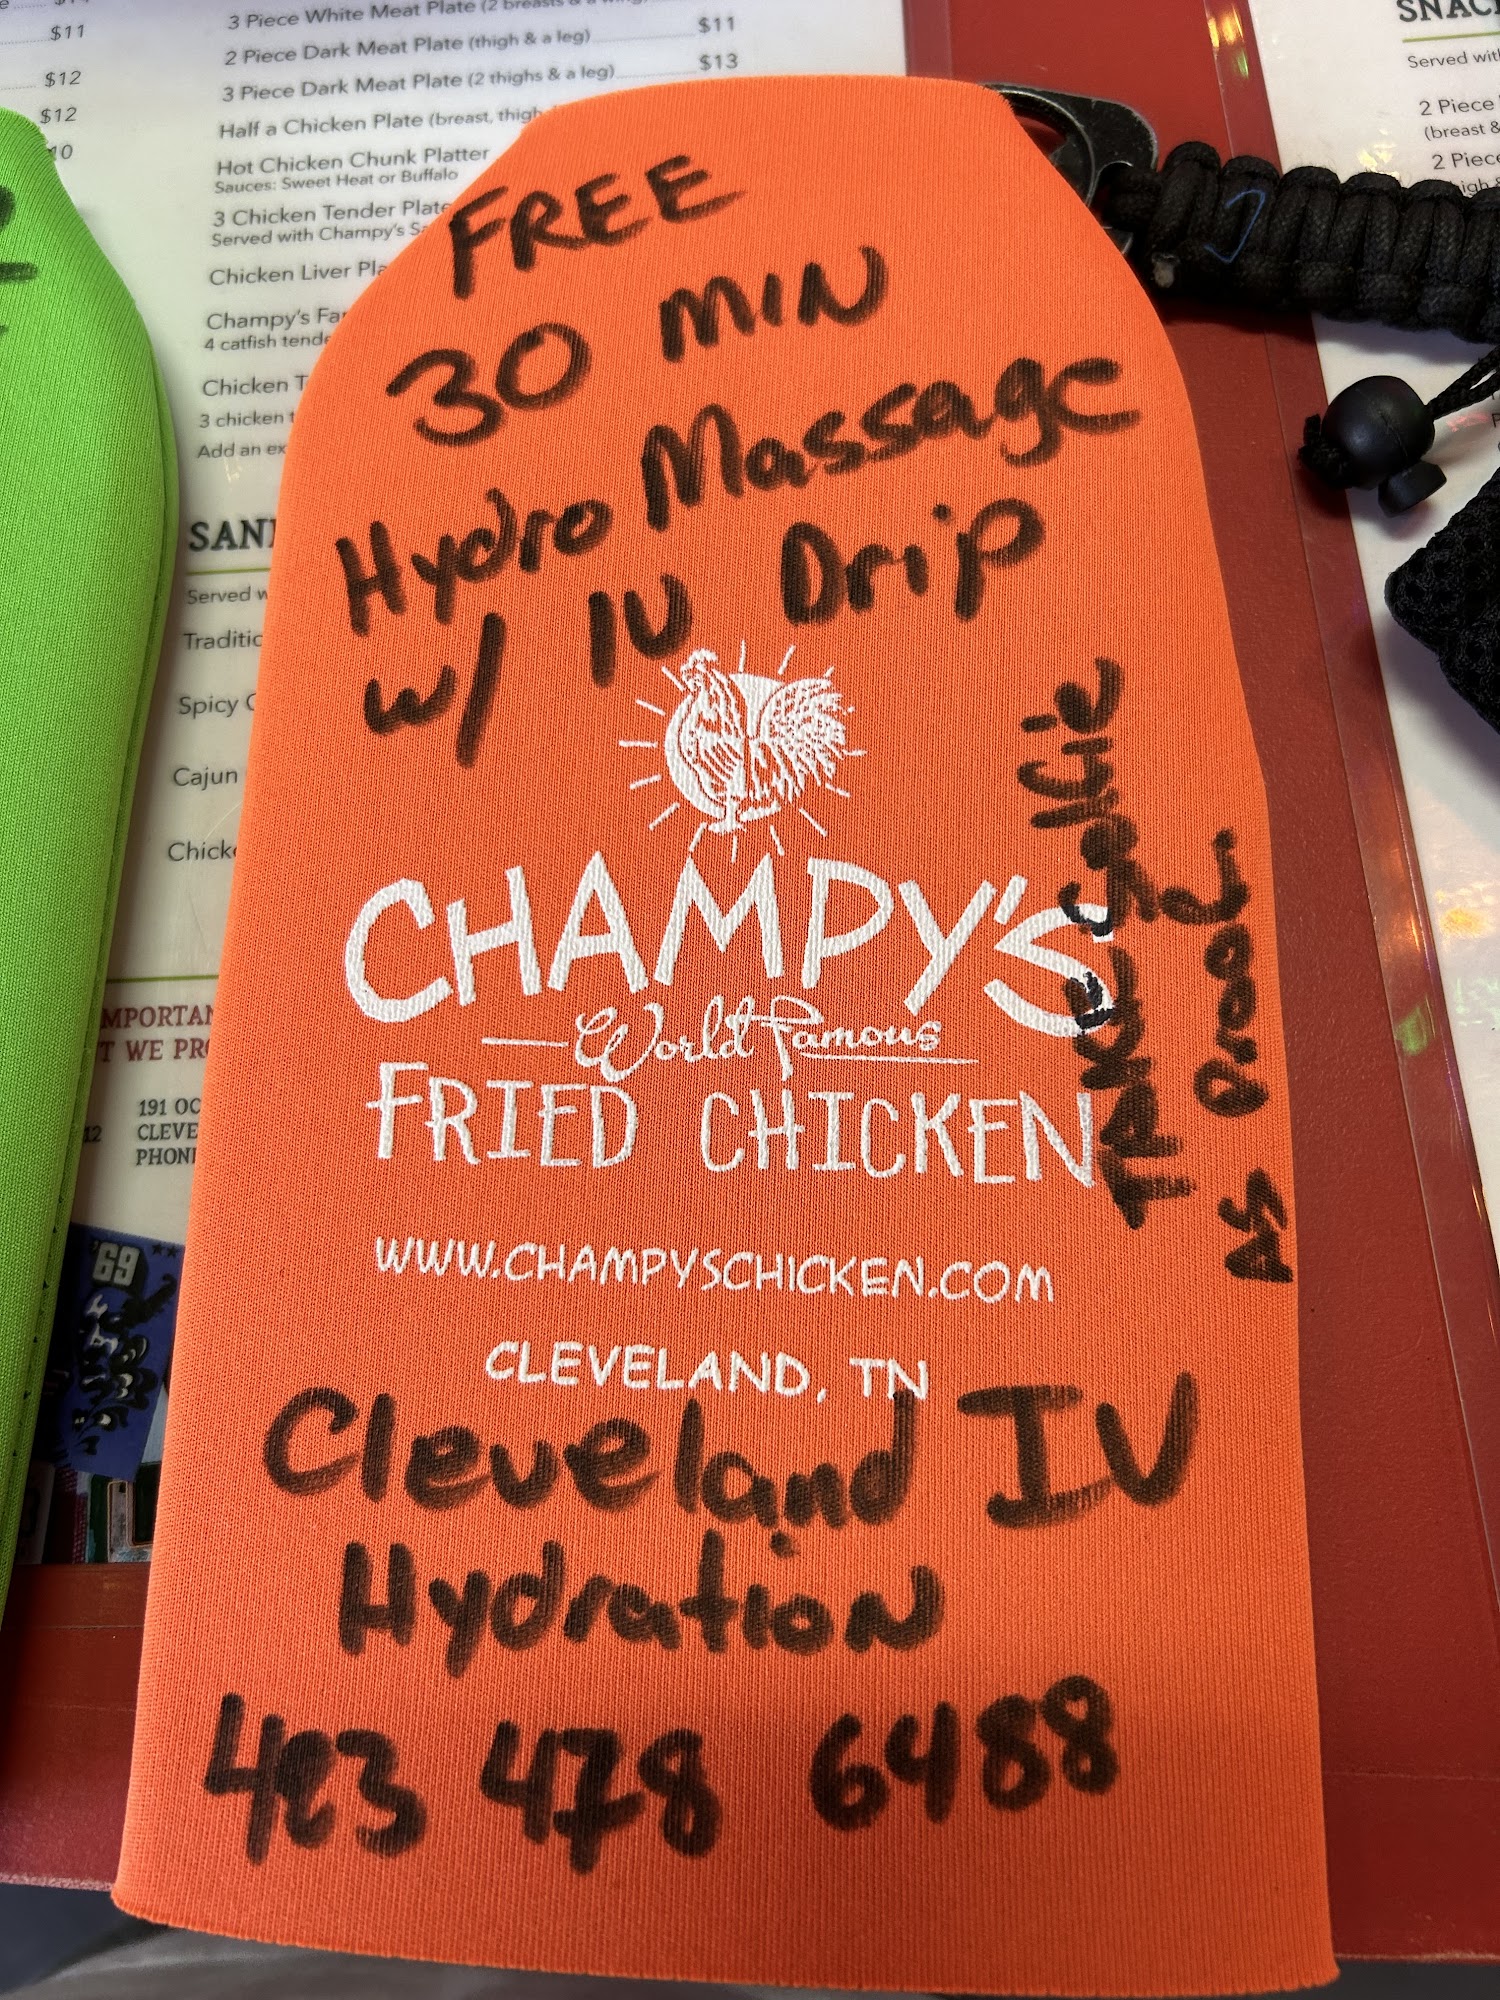 $11
$12
$12
3 Piece White Meat Plate (2 breasts & a wing)
2 Piece Dark Meat Plate (thigh & a leg) $11
3 Piece Dark Meat Plate (2 thighs & a leg) $13
Half a Chicken Plate (breast, thigh
Hot Chicken Chunk Platter
Sauces: Sweet Heat or Buffalo
3 Chicken Tender Plate
Served with Champy's Sa
Chicken Liver Pla
Champy's Fa
4 catfish tende
Chicken T
3 chicken t
Add an ex
SAN
Served w
Traditio
Spicy C
Cajun
Chick
MPORTAN
T WE PR
191 OC
CLEVE
PHON
'69
FREE
30 MIN
Hydro Massage
w/ IV Drip
CHAMPY'S
World Famous
FRIED CHICKEN
WWW.CHAMPYSCHICKEN.COM
CLEVELAND, TN
Cleveland IV
Hydration
423 478 6488
TAKE Selfie
AS Proof.
SNAC
Served with
2 Piece
(breast &
2 Piece